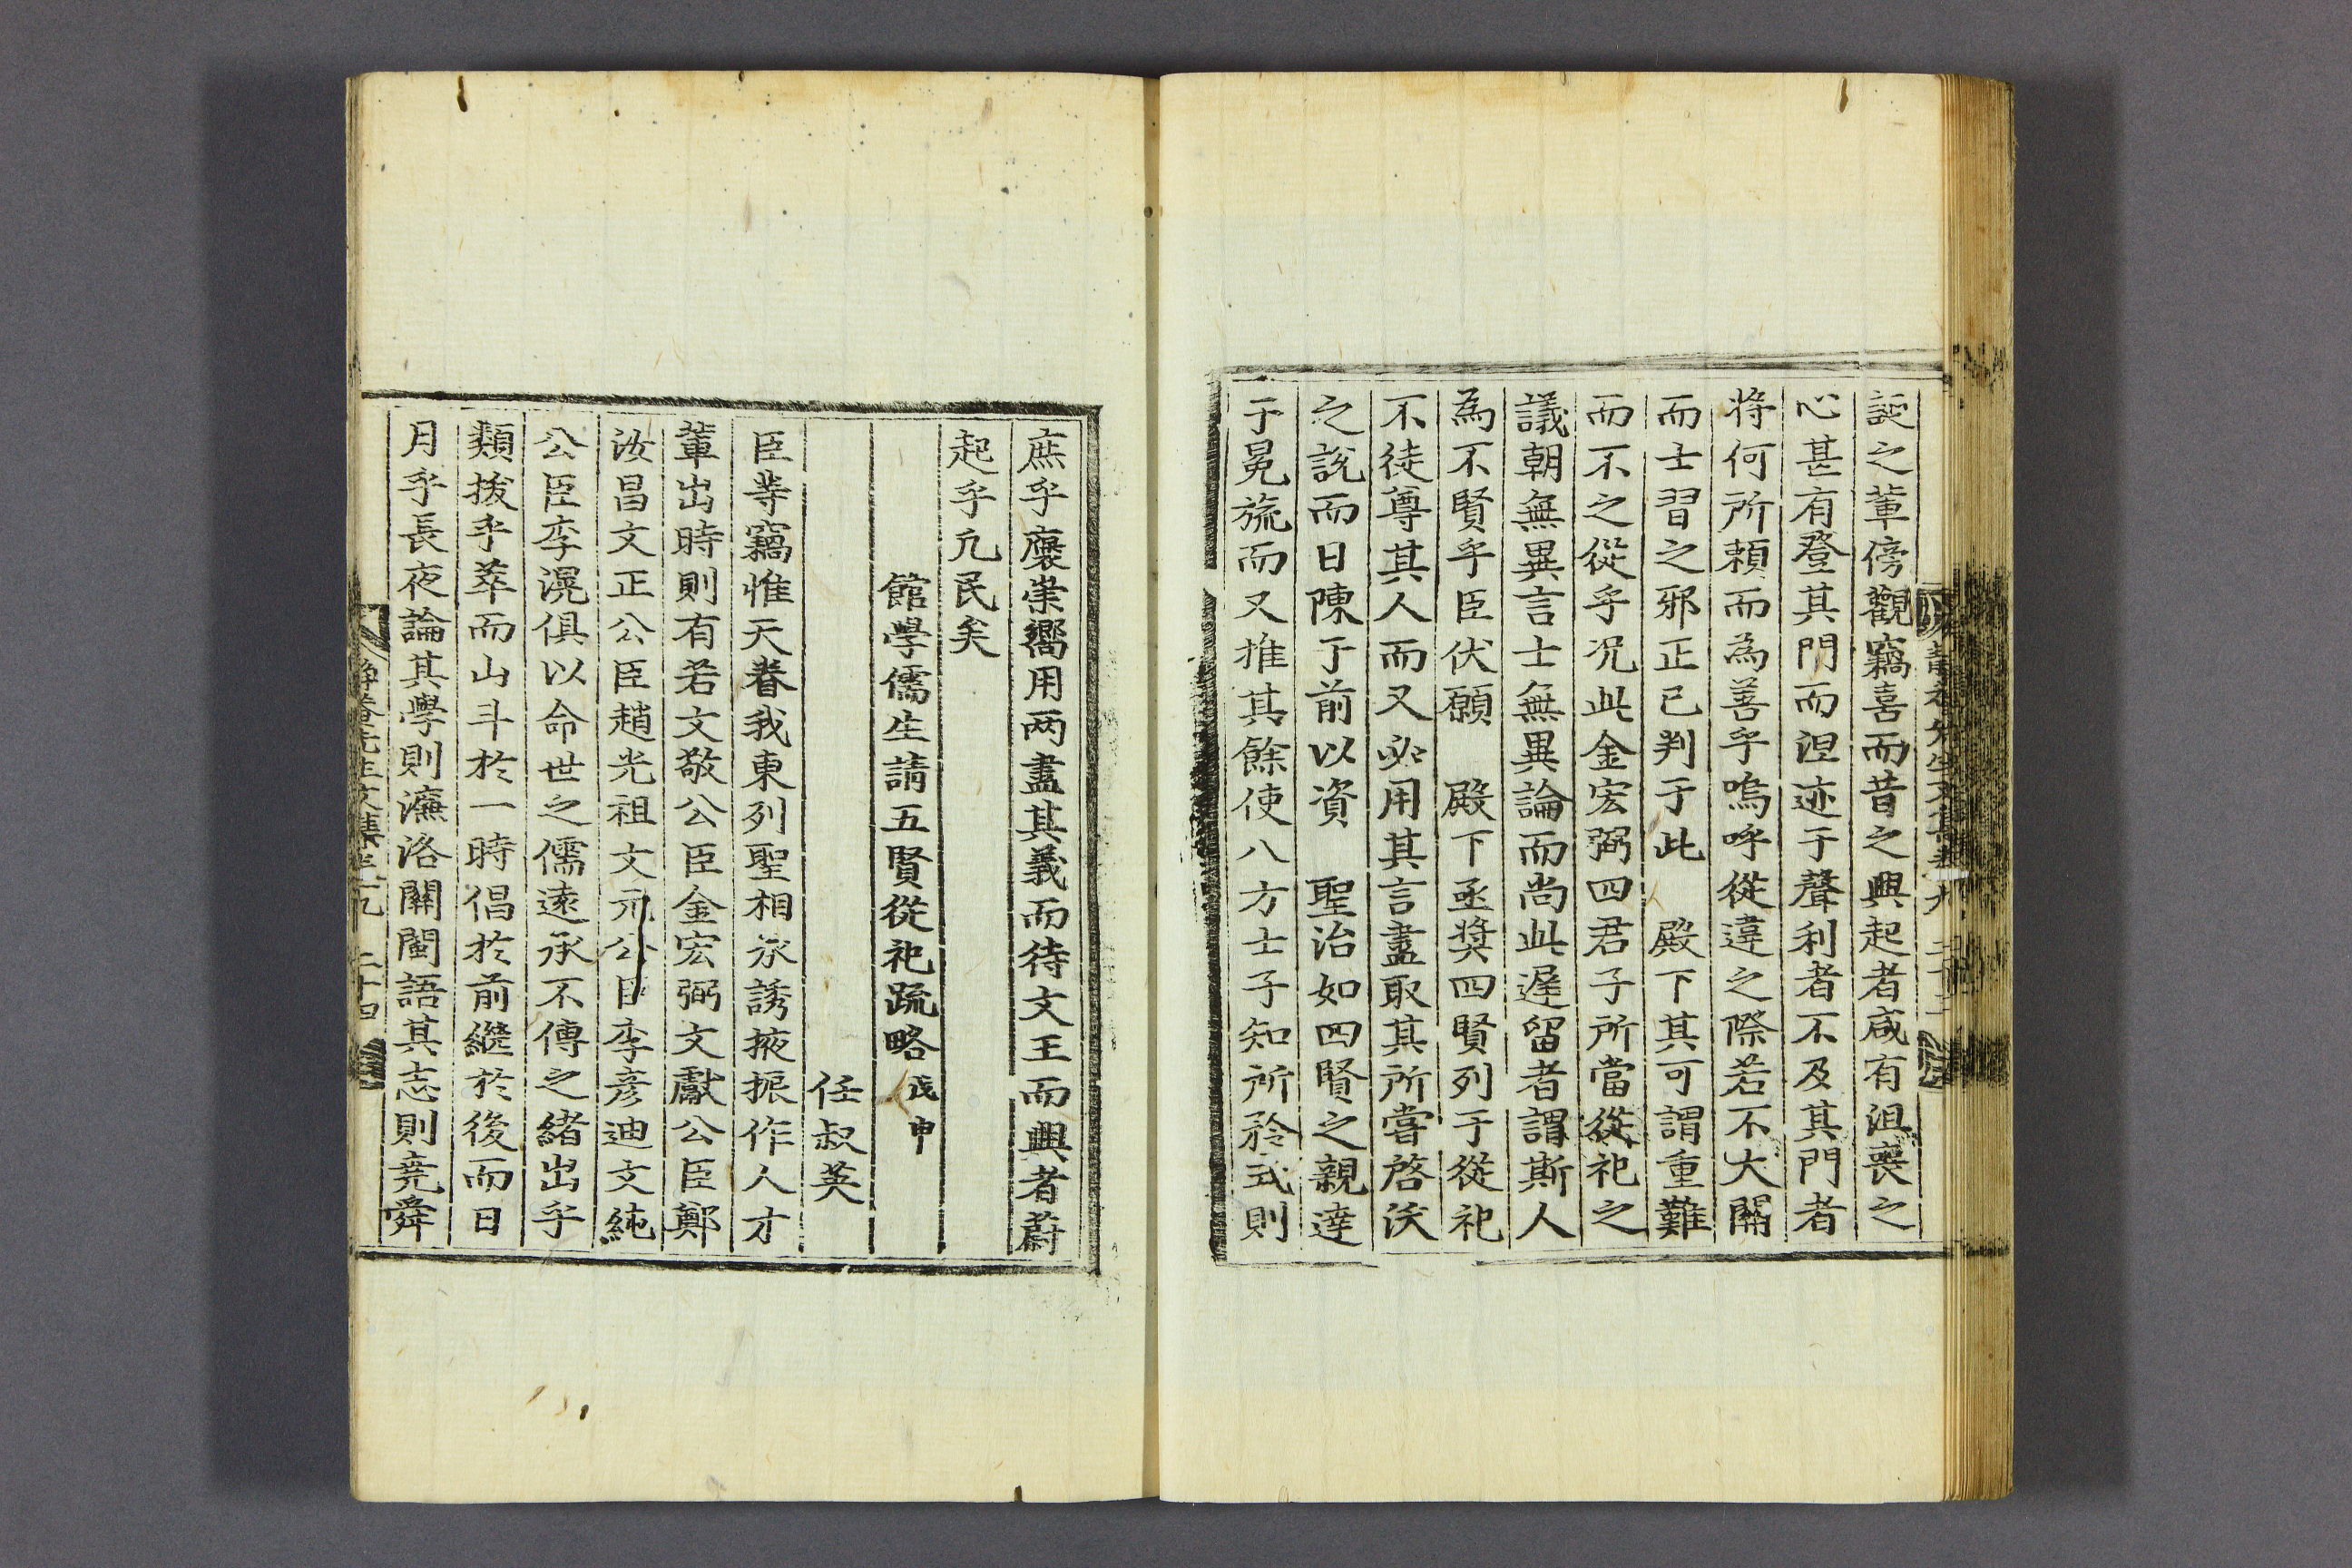 誣之輩傍觀竊喜而昔之興起者咸有沮喪之
心甚有登其門而浼迹于聲利者不及其門者
將何所賴而為善乎嗚呼從違之際若不大關
而士習之邪正已判于此 殿下其可謂重難
而不之從乎况此金宏弼四君子所當從祀之
議朝無異言士無異論而尚此遲留者謂斯人
為不賢乎臣伏願 殿下亟奬四賢列于從祀
不徒尊其人而又必用其言盡取其所嘗啓沃
之說而日陳于前以資 聖治如四賢之親達
于冕旒而又推其餘使八方士子知所矜式則
庶乎褒崇嚮用两盡其義而待文王而興者蔚
起乎凡民矣
館學儒生請五賢從祀疏略 戊申
任叔英
臣等竊惟天眷我東列聖相承誘掖振作人才
輩出時則有若文敬公臣金宏弼文獻公臣鄭
汝昌文正公臣趙光祖文元公臣李彦迪文純
公臣李滉俱以命世之儒遠承不傳之緖出乎
類拔乎萃而山斗於一時倡於前繼於後而日
月乎長夜論其學則濂洛關閩語其志則堯舜
靜菴先生文集卷之九 二十四